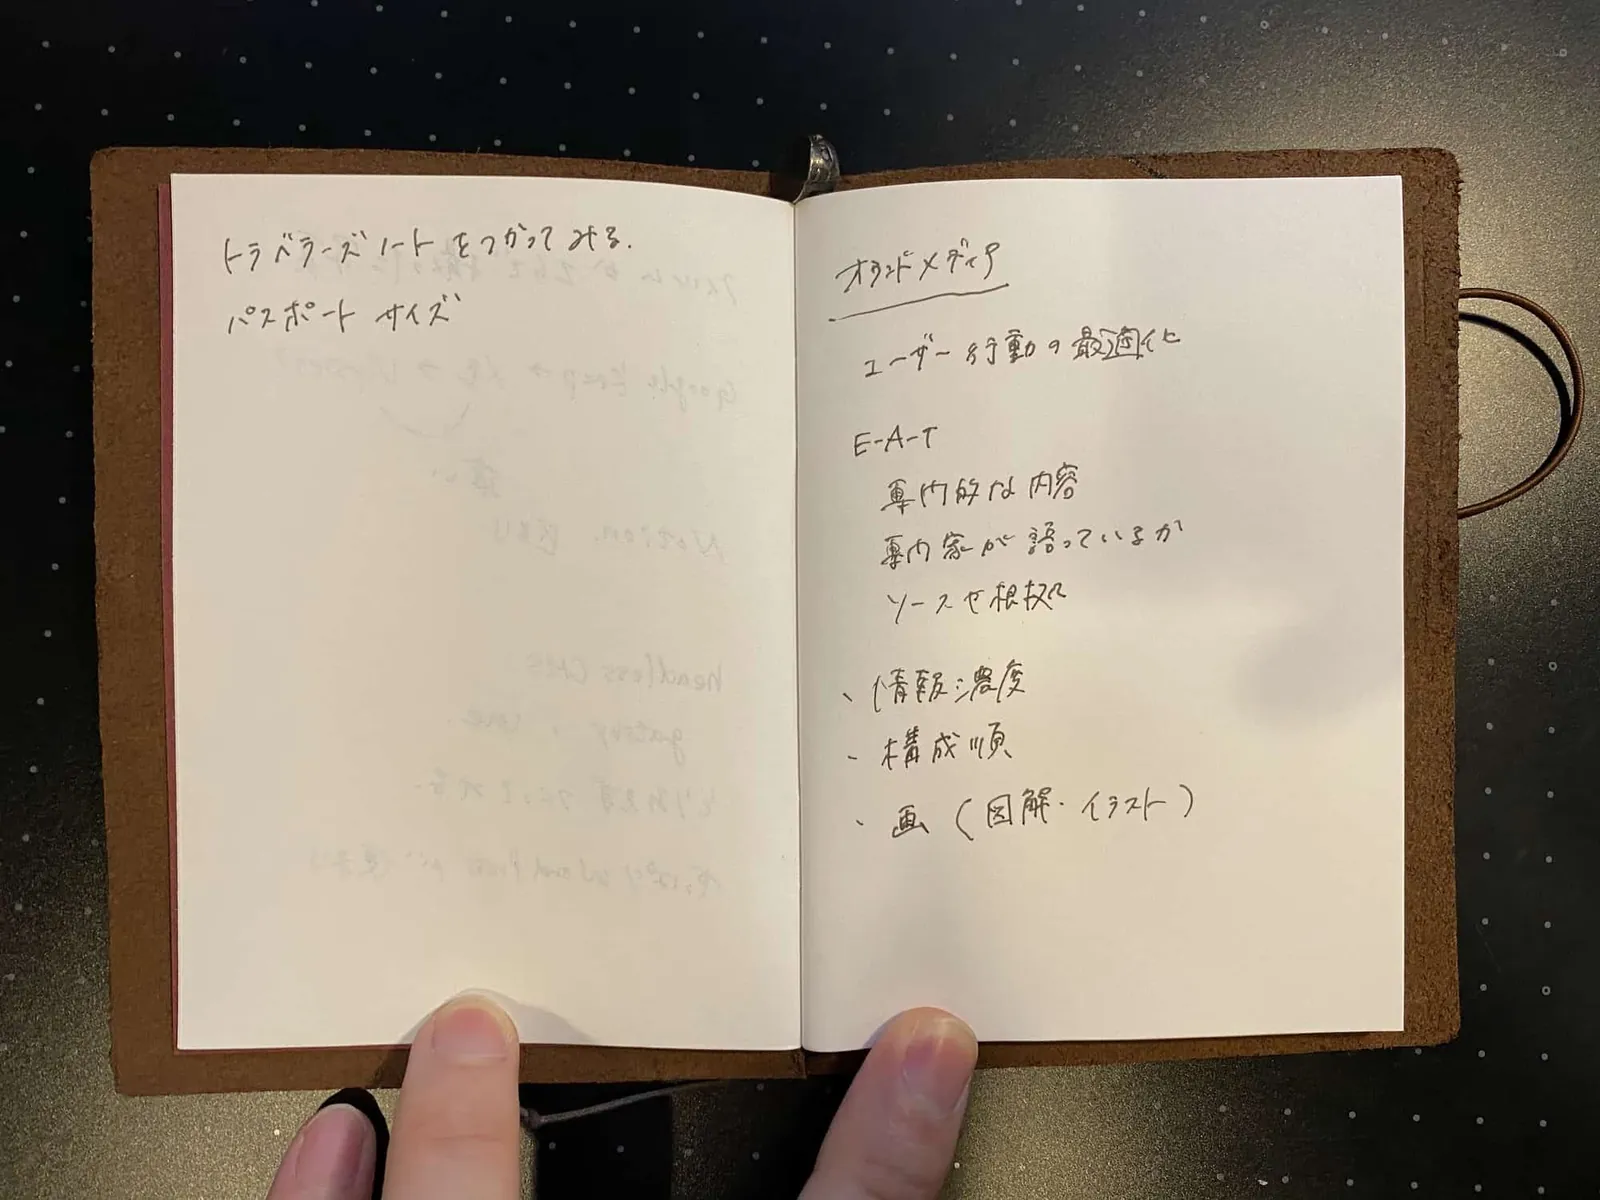 トラベラーズノートをつかってみる.
パスポートサイズ
オウンドメディア
ユーザー行動の最適化
E-A-T
専門的な内容
専門家が語っているか
ソースや根拠
・情報濃度
・構成順
・画(図解・イラスト)
Notion
headless CMS